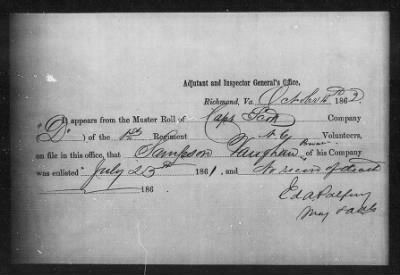 Adjutant and Inspector General's Office,
Richmond, Va. 1862
It appears from the Muster Roll of Capt Company
"D" ) of the Regiment Volunteers,
on file in this office, that Sampson Vaughan of his Company
was enlisted July 25th 1861, and No record of death
186
Ed A Palfrey